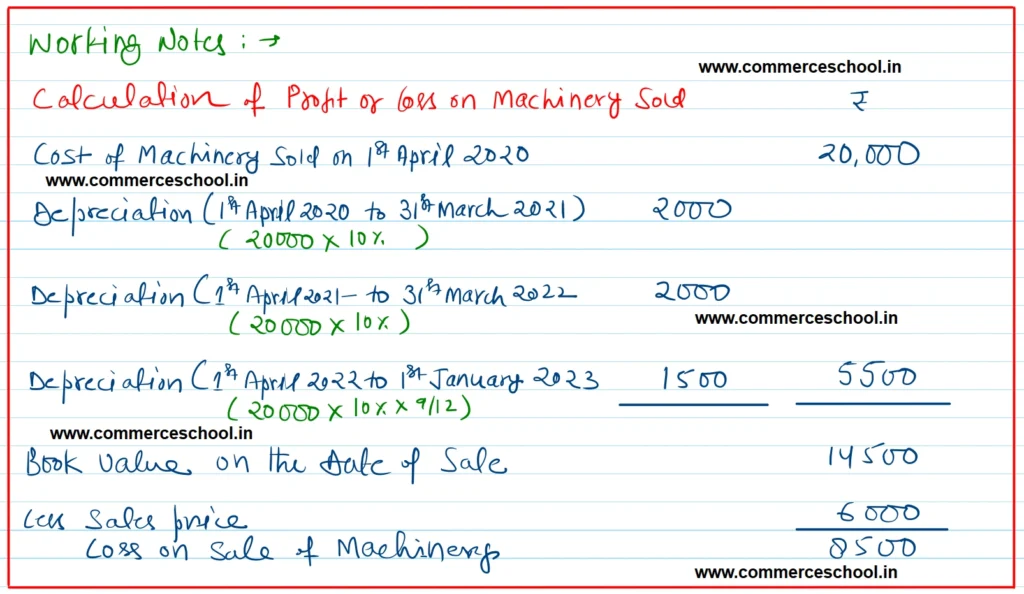 Working Notes : →
www.commerceschool.in
Calculation of Profit or Loss on Machinery Sold ₹
Cost of Machinery Sold on 1st April 2020 20,000
www.commerceschool.in
Depreciation (1st April 2020 to 31st March 2021) 2000
( 20000 x 10% )
Depreciation (1st April 2021 - to 31st March 2022 2000
( 20000 x 10% )
www.commerceschool.in
Depreciation (1st April 2022 to 1st January 2023 1500 5500
( 20000 x 10% x 9/12 )
www.commerceschool.in
Book Value on the Date of Sale 14500
Less Sales price 6000
Loss on Sale of Machinery 8500
www.commerceschool.in